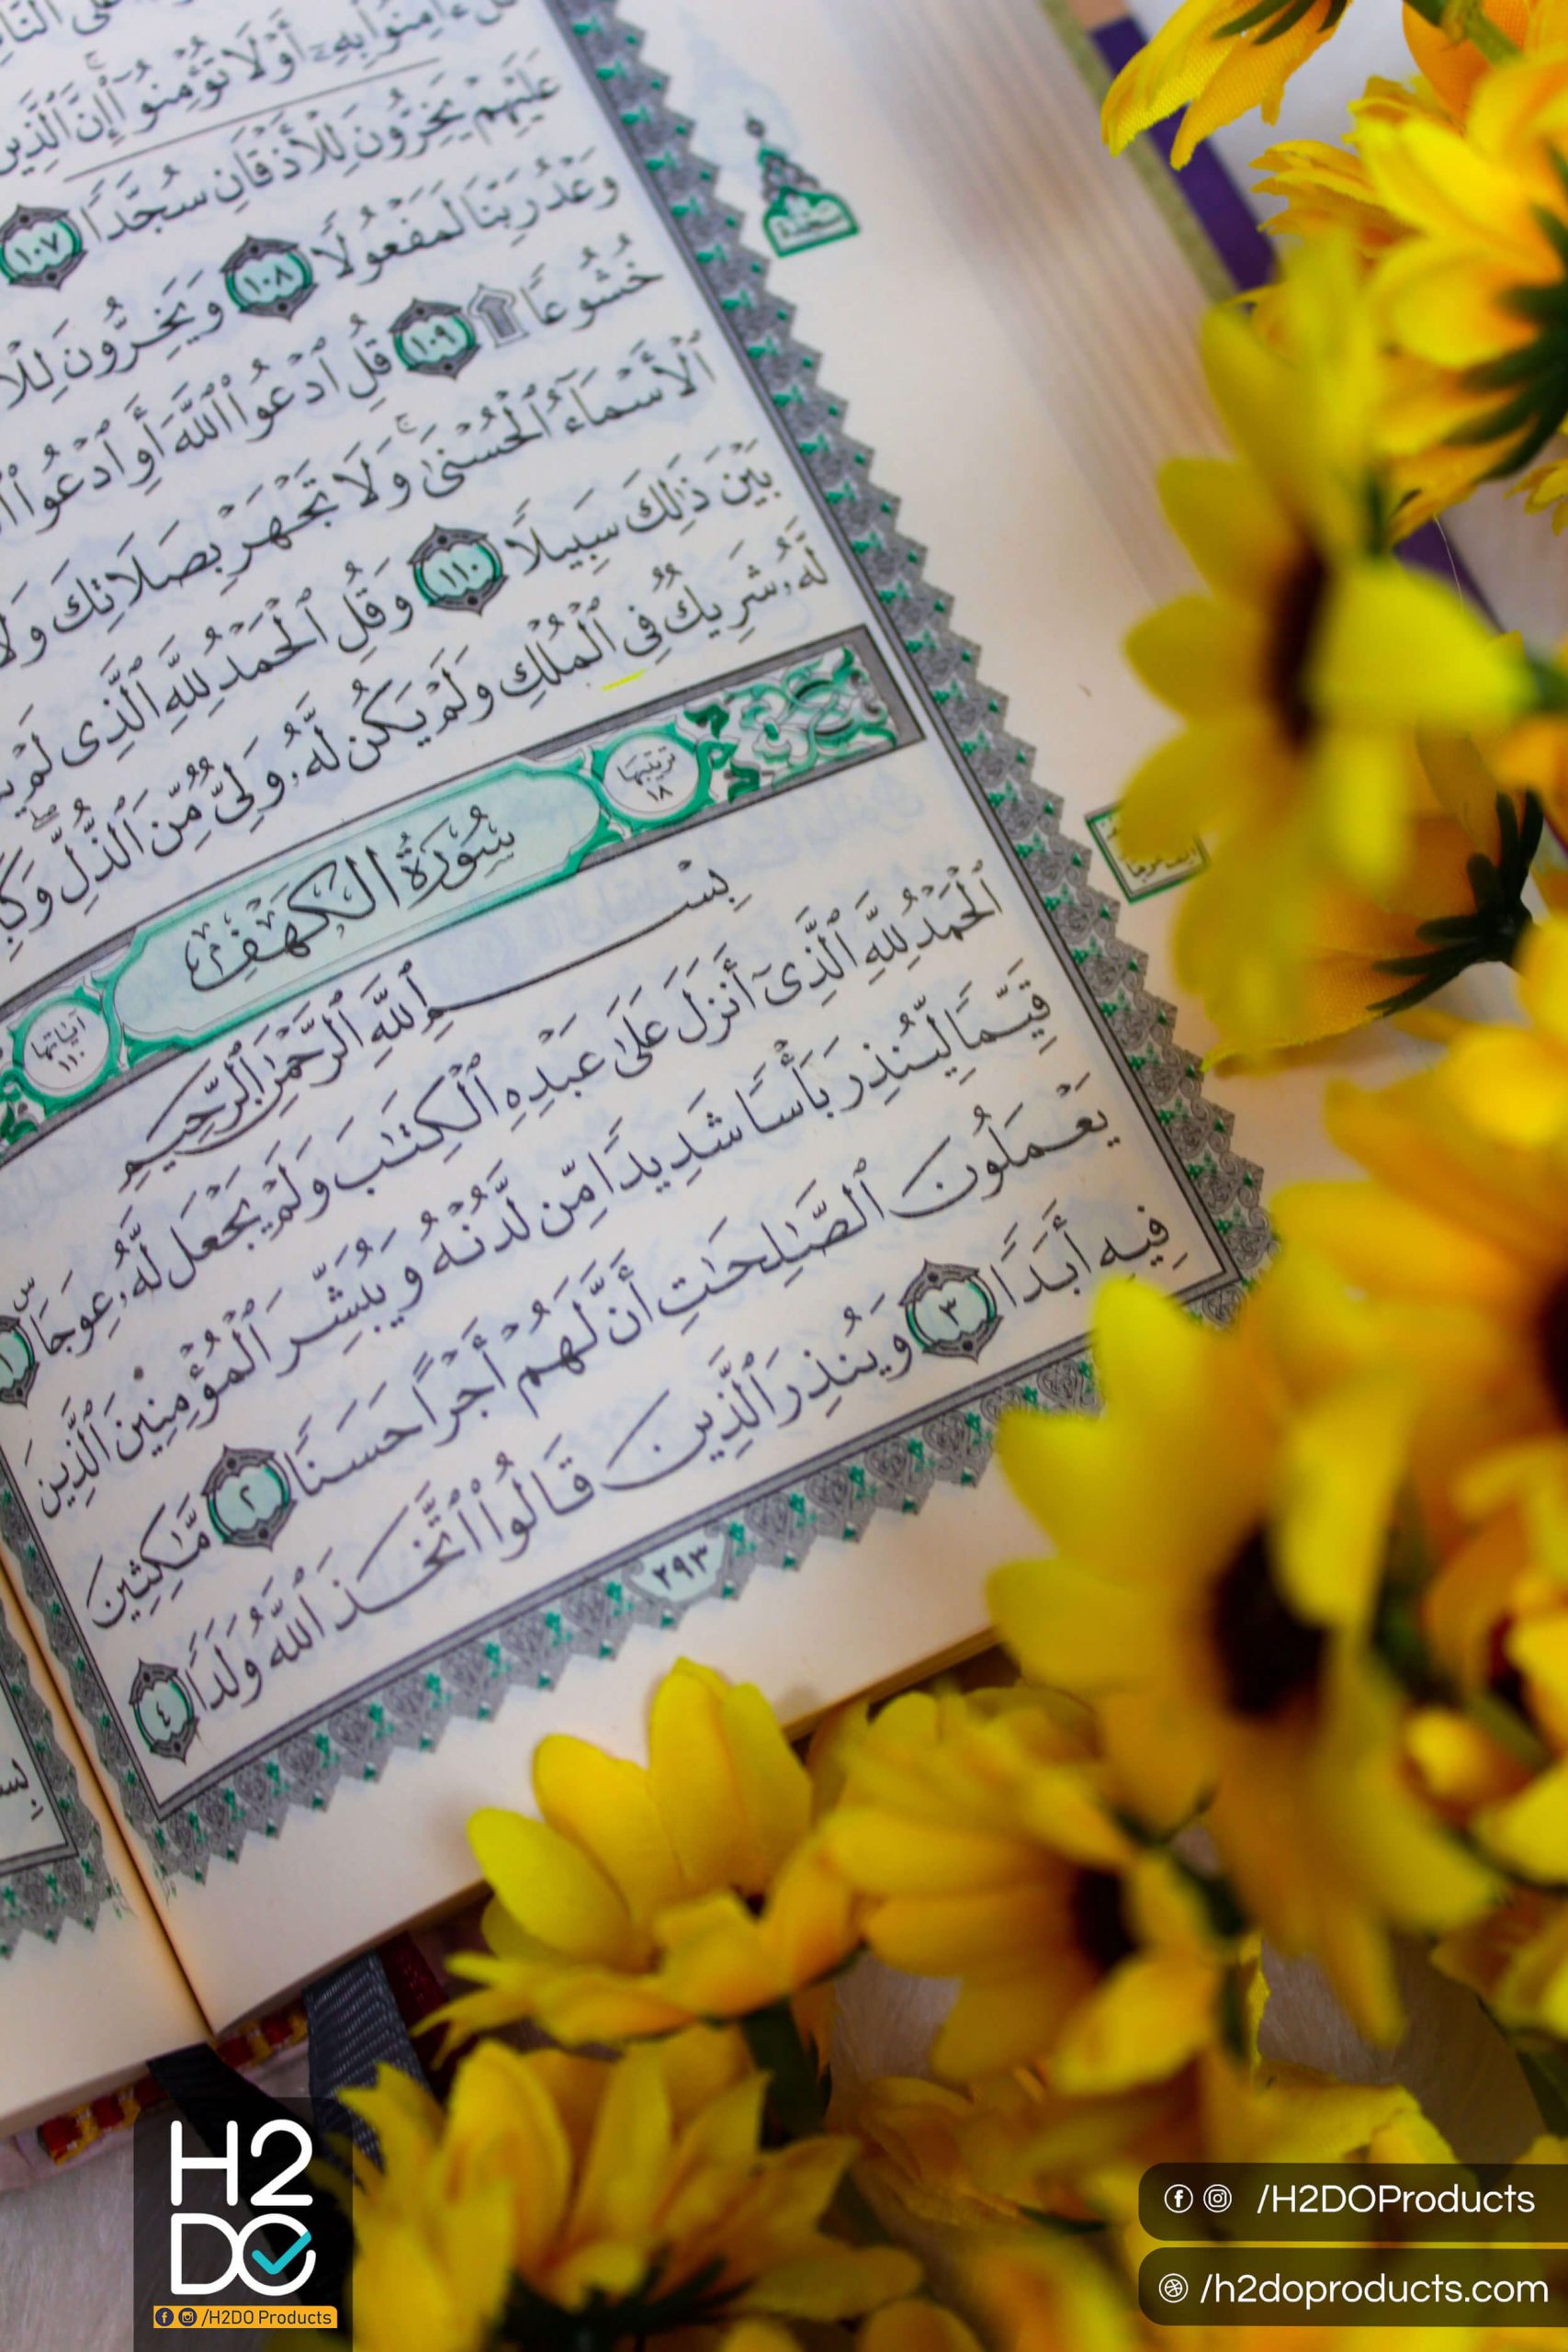 ءَامِنُوا۟ بِهِۦٓ أَوْ لَا تُؤْمِنُوٓا۟ إِنَّ ٱلَّذِينَ
عَلَيْهِمْ يَخِرُّونَ لِلْأَذْقَانِ سُجَّدًا ١٠٧
وَعْدُ رَبِّنَا لَمَفْعُولًا ١٠٨ وَيَخِرُّونَ
خُشُوعًا ۩ ١٠٩ قُلِ ٱدْعُوا۟ ٱللَّهَ أَوِ ٱدْعُوا۟
ٱلْأَسْمَآءُ ٱلْحُسْنَىٰ وَلَا تَجْهَرْ بِصَلَاتِكَ وَلَا
بَيْنَ ذَٰلِكَ سَبِيلًا ١١٠ وَقُلِ ٱلْحَمْدُ لِلَّهِ ٱلَّذِى لَمْ
لَّهُۥ شَرِيكٌ فِى ٱلْمُلْكِ وَلَمْ يَكُن لَّهُۥ وَلِىٌّ مِّنَ ٱلذُّلِّ
ترتيبها ١٨
سُورَةُ الكَهْفِ
آياتها ١١٠
بِسْمِ ٱللَّهِ ٱلرَّحْمَٰنِ ٱلرَّحِيمِ
ٱلْحَمْدُ لِلَّهِ ٱلَّذِىٓ أَنزَلَ عَلَىٰ عَبْدِهِ ٱلْكِتَٰبَ وَلَمْ يَجْعَل لَّهُۥ عِوَجَاۜ ١
قَيِّمًا لِّيُنذِرَ بَأْسًا شَدِيدًا مِّن لَّدُنْهُ وَيُبَشِّرَ ٱلْمُؤْمِنِينَ ٱلَّذِينَ
يَعْمَلُونَ ٱلصَّٰلِحَٰتِ أَنَّ لَهُمْ أَجْرًا حَسَنًا ٢ مَّٰكِثِينَ
فِيهِ أَبَدًا ٣ وَيُنذِرَ ٱلَّذِينَ قَالُوا۟ ٱتَّخَذَ ٱللَّهُ وَلَدًا ٤
٢٩٣
سجدة
H2
DO
/H2DO Products
/H2DOProducts
/h2doproducts.com